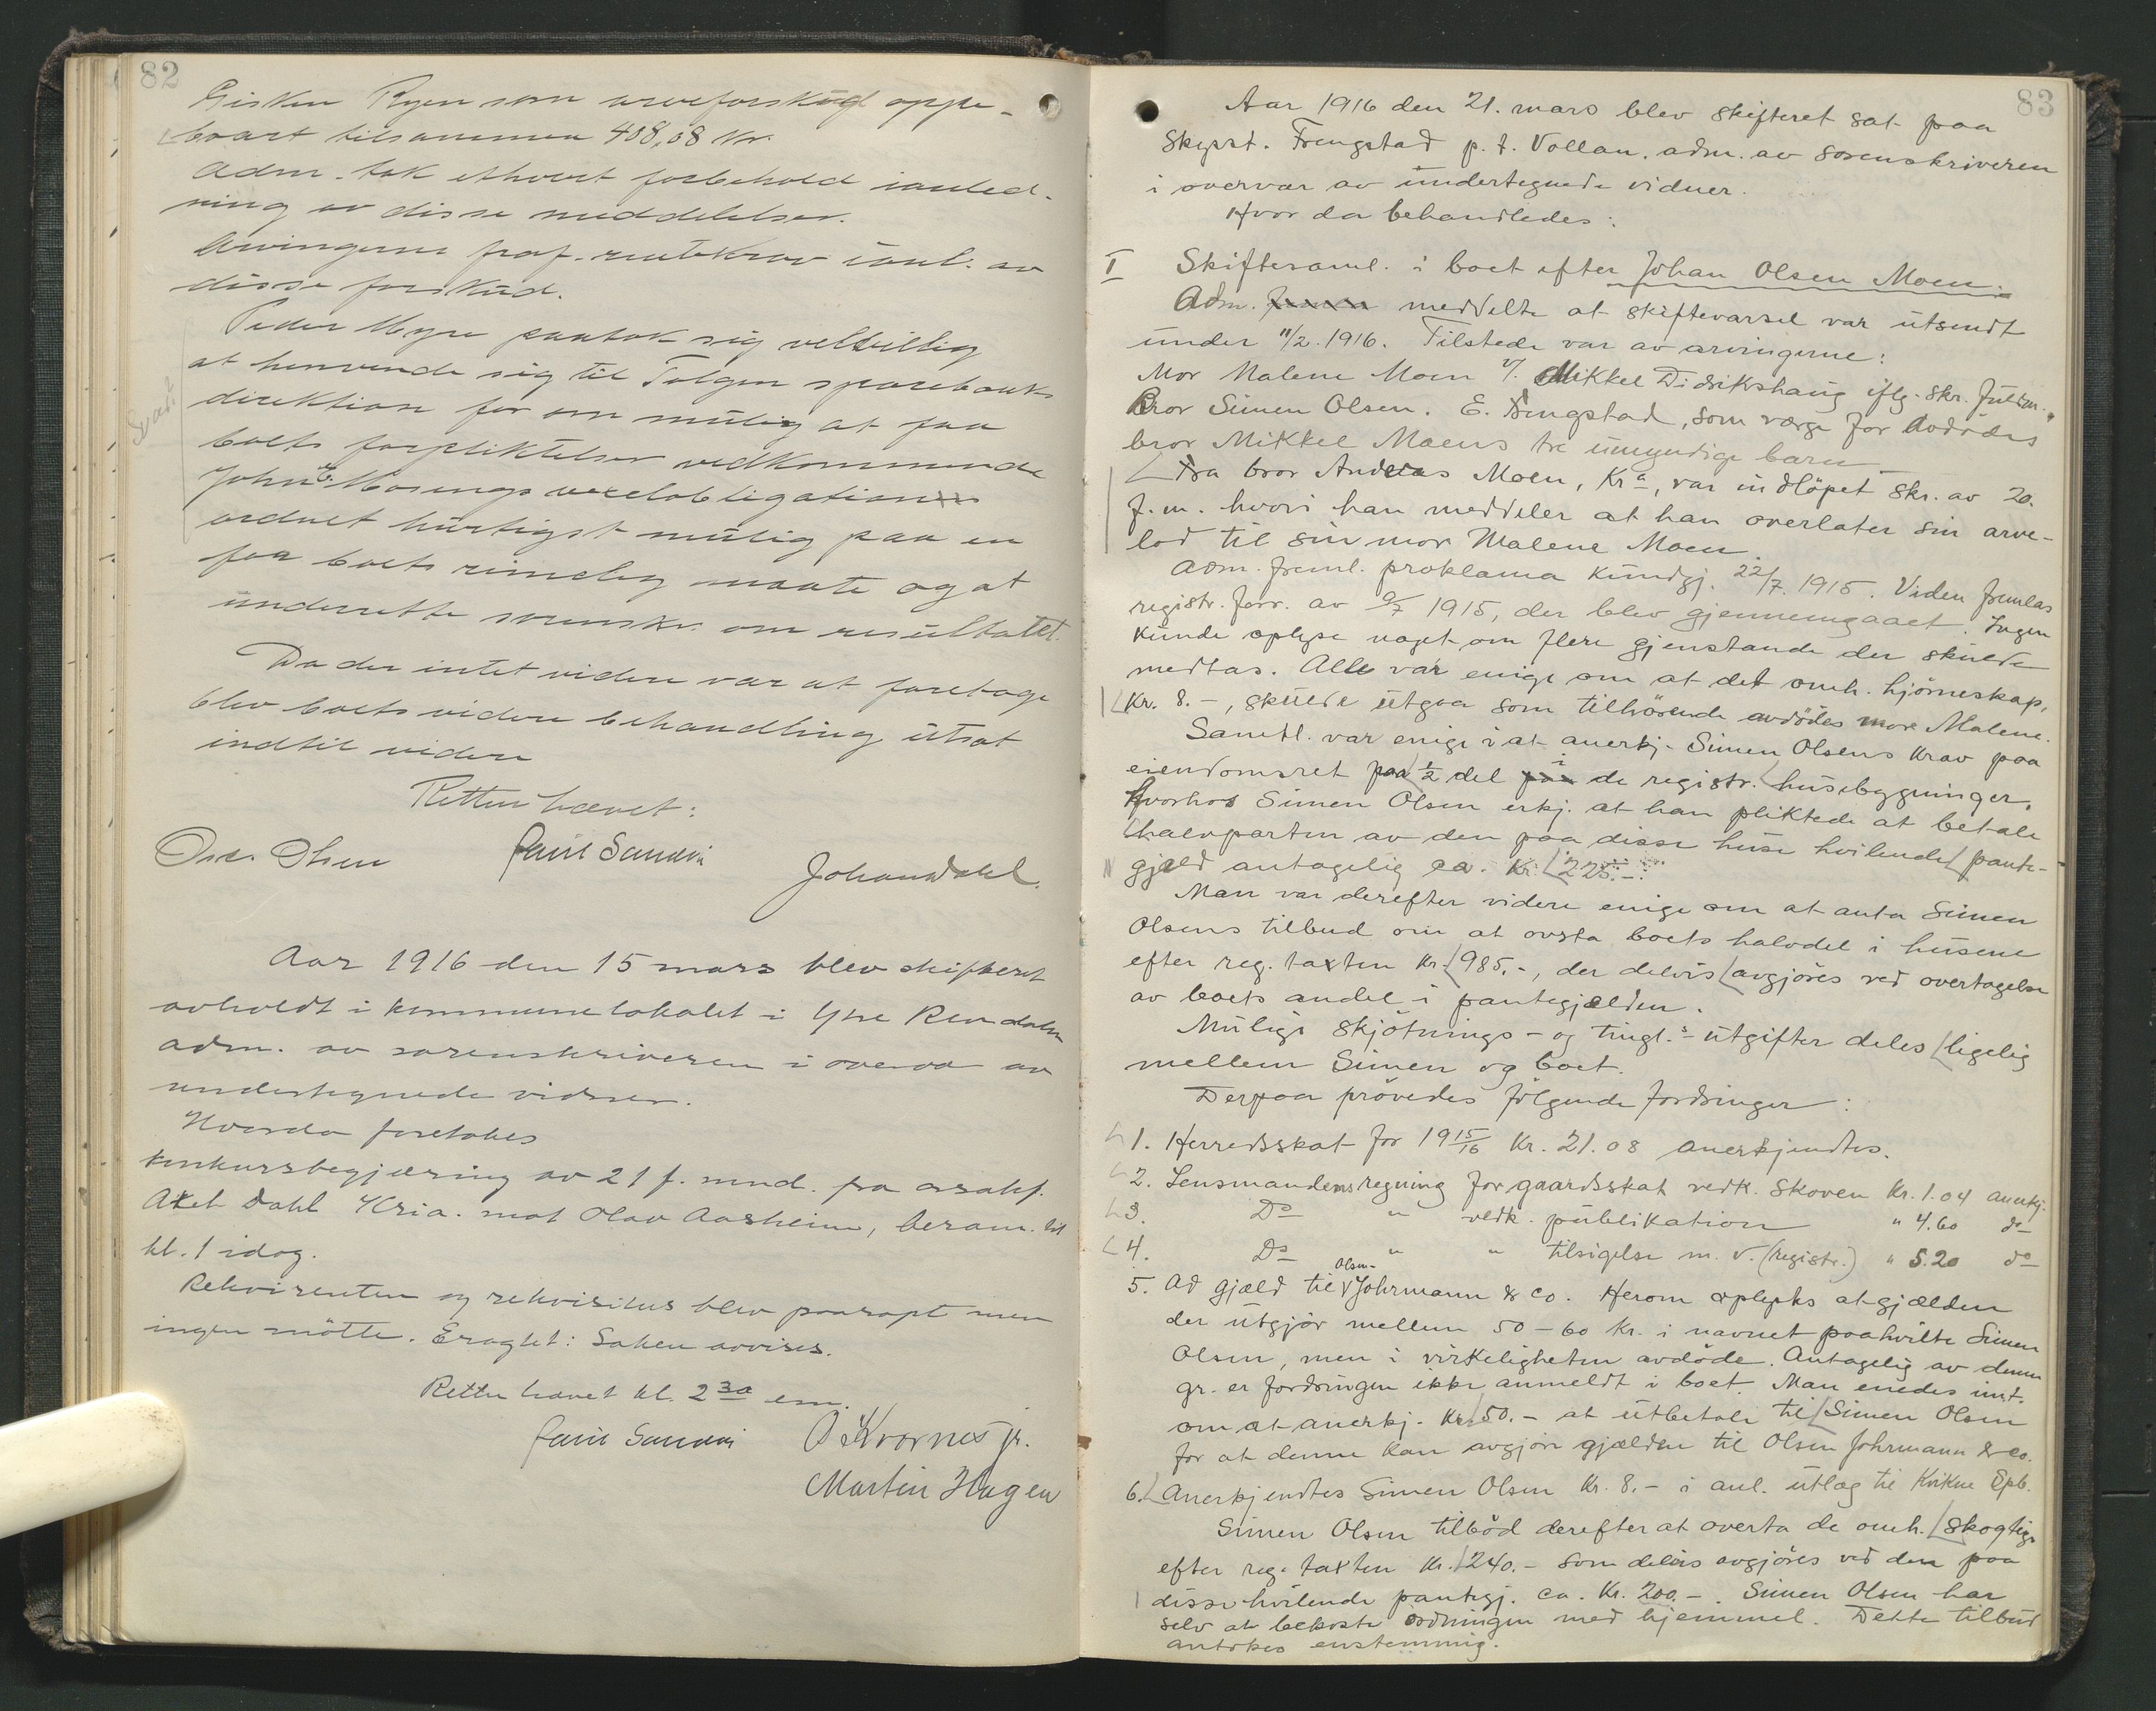 82
Gisken Ryen som arveforskud oppe-
baaret tilsammen 408,08 Kr.
Adm. tok ethvert forbehold i anled-
ning av disse meddelelser.
Arvingerne fraf. rentekrav i anl. av
disse forskud.
Peder Myre paatok sig velvillig
at henvende sig til Tolgen sparebanks
direktion for om mulig at faa
boets forpliktelser vedkommende
John Mosengs vexelobligation
ordnet hurtigst mulig paa en
for boets rimelig maate og at
underrette sorenskr. om resultatet.
Svart
Da der intet videre var at foretage
blev boets videre behandling utsat
indtil videre
Retten hævet:
Paul Sandvi
Johan Dahl.
Aar 1916 den 15 mars blev skifteret
avholdt i kommunelokalet i Ytre Rendalen
adm. av sorenskriveren i overvær av
undertegnede vidner.
Hvorda foretokes
Konkursbegjæring av 21 f. mnd. fra orsakf.
Axel Dahl Kria. mot Olav Aasheim, beram. til
kl. 1 idag.
Rekvirenten og rekvisitus blev paaropt men
ingen mötte. Eragtet: Saken avvises.
Retten hævet kl. 2 30 em.
Paul Sandvi O. Kvornes jr.
Martin Hagen
83
Aar 1916 den 21. mars blev skifteret sat paa
Skysst. Frengstad p. t. Vollan. adm. av sorenskriveren
i overvær av undertegnede vidner.
Hvor da behandledes:
I Skiftesaml. i boet efter Johan Olsen Moen.
Adm. meddelte at skiftevarsel var utsendt
under 11/2. 1916. Tilstede var av arvingerne:
Mor Malene Moen v/. Mikkel Didrikshaug iflg. skr. fuldm.,
Bror Simen Olsen. E. Frengstad, som værge for avdödes
bror Mikkel Moens tre umyndige barn.
Fra bror Andreas Moen, Kra, var indlöpet skr. av 20.
f. m. hvori han meddeler at han overlater sin arve-
lod til sin mor Malene Moen.
Adm. freml. proklama kundgj. 22/7. 1915. Viden fremlas
registr. forr. av 9/7 1915, der blev gjennemgaaet. Ingen
kunde oplyse noget om flere gjenstande der skulde
medtas. Alle var enige om at det omh. hjörneskap,
Kr. 8.-, skulde utgaa som tilhörende avdödes mor Malene.
Samtl. var enige i at anerkj. Simen Olsens krav paa
eiendomsret paa 1/2 del i de registr. husebygninger.
Hvorhos Simen Olsen erkj. at han pliktede at betale
halvparten av den paa disse huse hvilende pante-
gjæld antagelig ca. Kr. 225.-
Man var derefter videre enige om at anta Simen
Olsens tilbud om at overta boets halvdel i husene
efter reg. taxten Kr. 985.-, der delvis avgjöres ved overtagelse
av boets andel i pantegjælden.
Mulige skjötnings- og tingl.s- utgifter deles ligelig
mellem Simen og boet.
Derpaa prövedes fölgende fordringer:
1. Herredsskat for 1915/16 Kr. 21.08 anerkjendtes.
2. Lensmandens regning for gaardsskat vedk. skoven Kr. 1.04 anerkj.
3. Do " vedk. publikation " 4.60 do
4. Do " " tilsigelse m. v. (registr.) " 5.20 do
5. Ad gjæld til Olsen Johrmann & Co. Herom oplystes at gjælden
der utgjör mellem 50 - 60 kr. i navnet paahvilte Simen
Olsen, men i virkeligheten avdöde. Antagelig av denne
gr. er fordringen ikke anmeldt i boet. Man enedes imt.
om at anerkj. Kr. 50.- at utbetale til Simen Olsen
for at denne kan avgjöre gjælden til Olsen Johrmann & Co.
6. Anerkjendtes Simen Olsen Kr. 8.- i anl. utlæg til Kvikne Spb.
Simen Olsen tilböd derefter at overta de omh. skogteige
efter reg. taxten Kr. 240.- som delvis avgjöres ved den paa
disse hvilende pantegj. ca. Kr. 200.-. Simen Olsen har
selv at bekoste ordningen med hjemmel. Dette tilbud
antokes enstemmig.